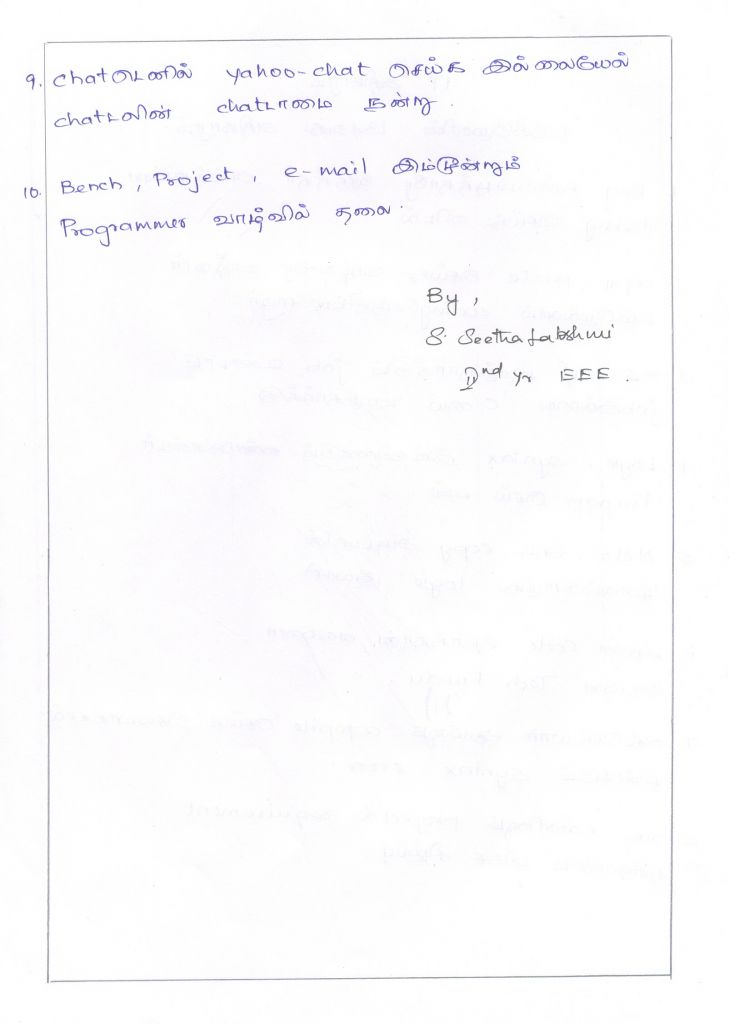 9. chatடெனில் yahoo-chat செய்க இல்லையேல்
chatடலின் chatடாமை நன்று.
10. Bench, Project, e-mail இம்மூன்றும்
Programmer வாழ்வில் தலை.
By,
S. Seethalakshmi
IInd yr EEE.